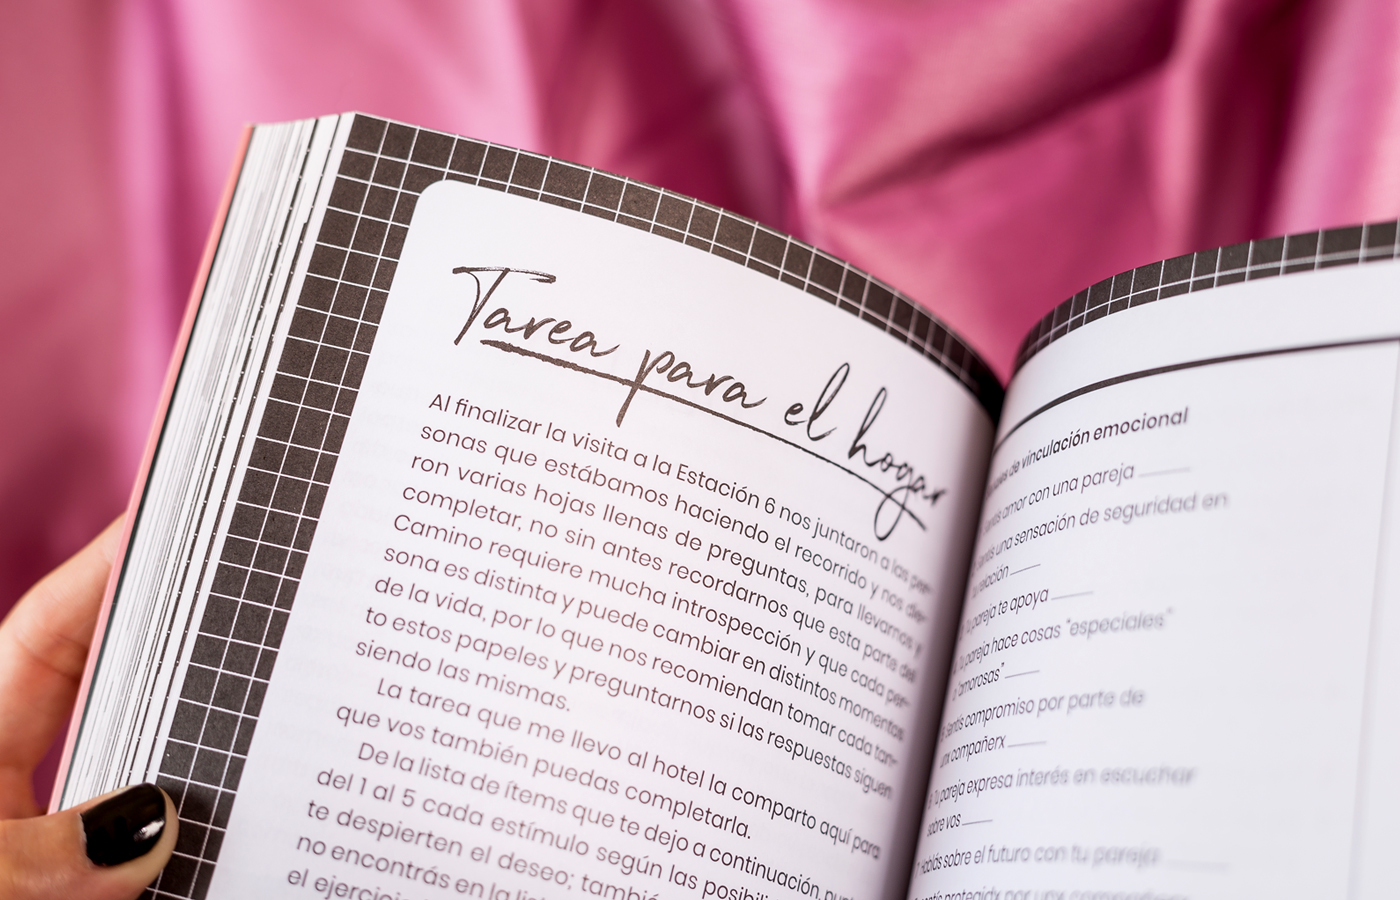 Tarea para el hogar
Al finalizar la visita a la Estación 6 nos juntaron a las per-
sonas que estábamos haciendo el recorrido y nos die-
ron varias hojas llenas de preguntas, para llevarnos y
completar, no sin antes recordarnos que esta parte del
Camino requiere mucha introspección y que cada per-
sona es distinta y puede cambiar en distintos momentos
de la vida, por lo que nos recomiendan tomar cada tan-
to estos papeles y preguntarnos si las respuestas siguen
siendo las mismas.
La tarea que me llevo al hotel la comparto aquí para
que vos también puedas completarla.
De la lista de ítems que te dejo a continuación,
del 1 al 5 cada estímulo según las
te despierten el deseo; también
no encontrás en la
el
de vinculación emocional
amor con una pareja ____
una sensación de seguridad en
relación ____
pareja te apoya ____
Tu pareja hace cosas "especiales"
"amorosas" ____
compromiso por parte de
compañerx ____
Tu pareja expresa interés en escuchar
sobre vos ____
Hablás sobre el futuro con tu pareja ____
por unx